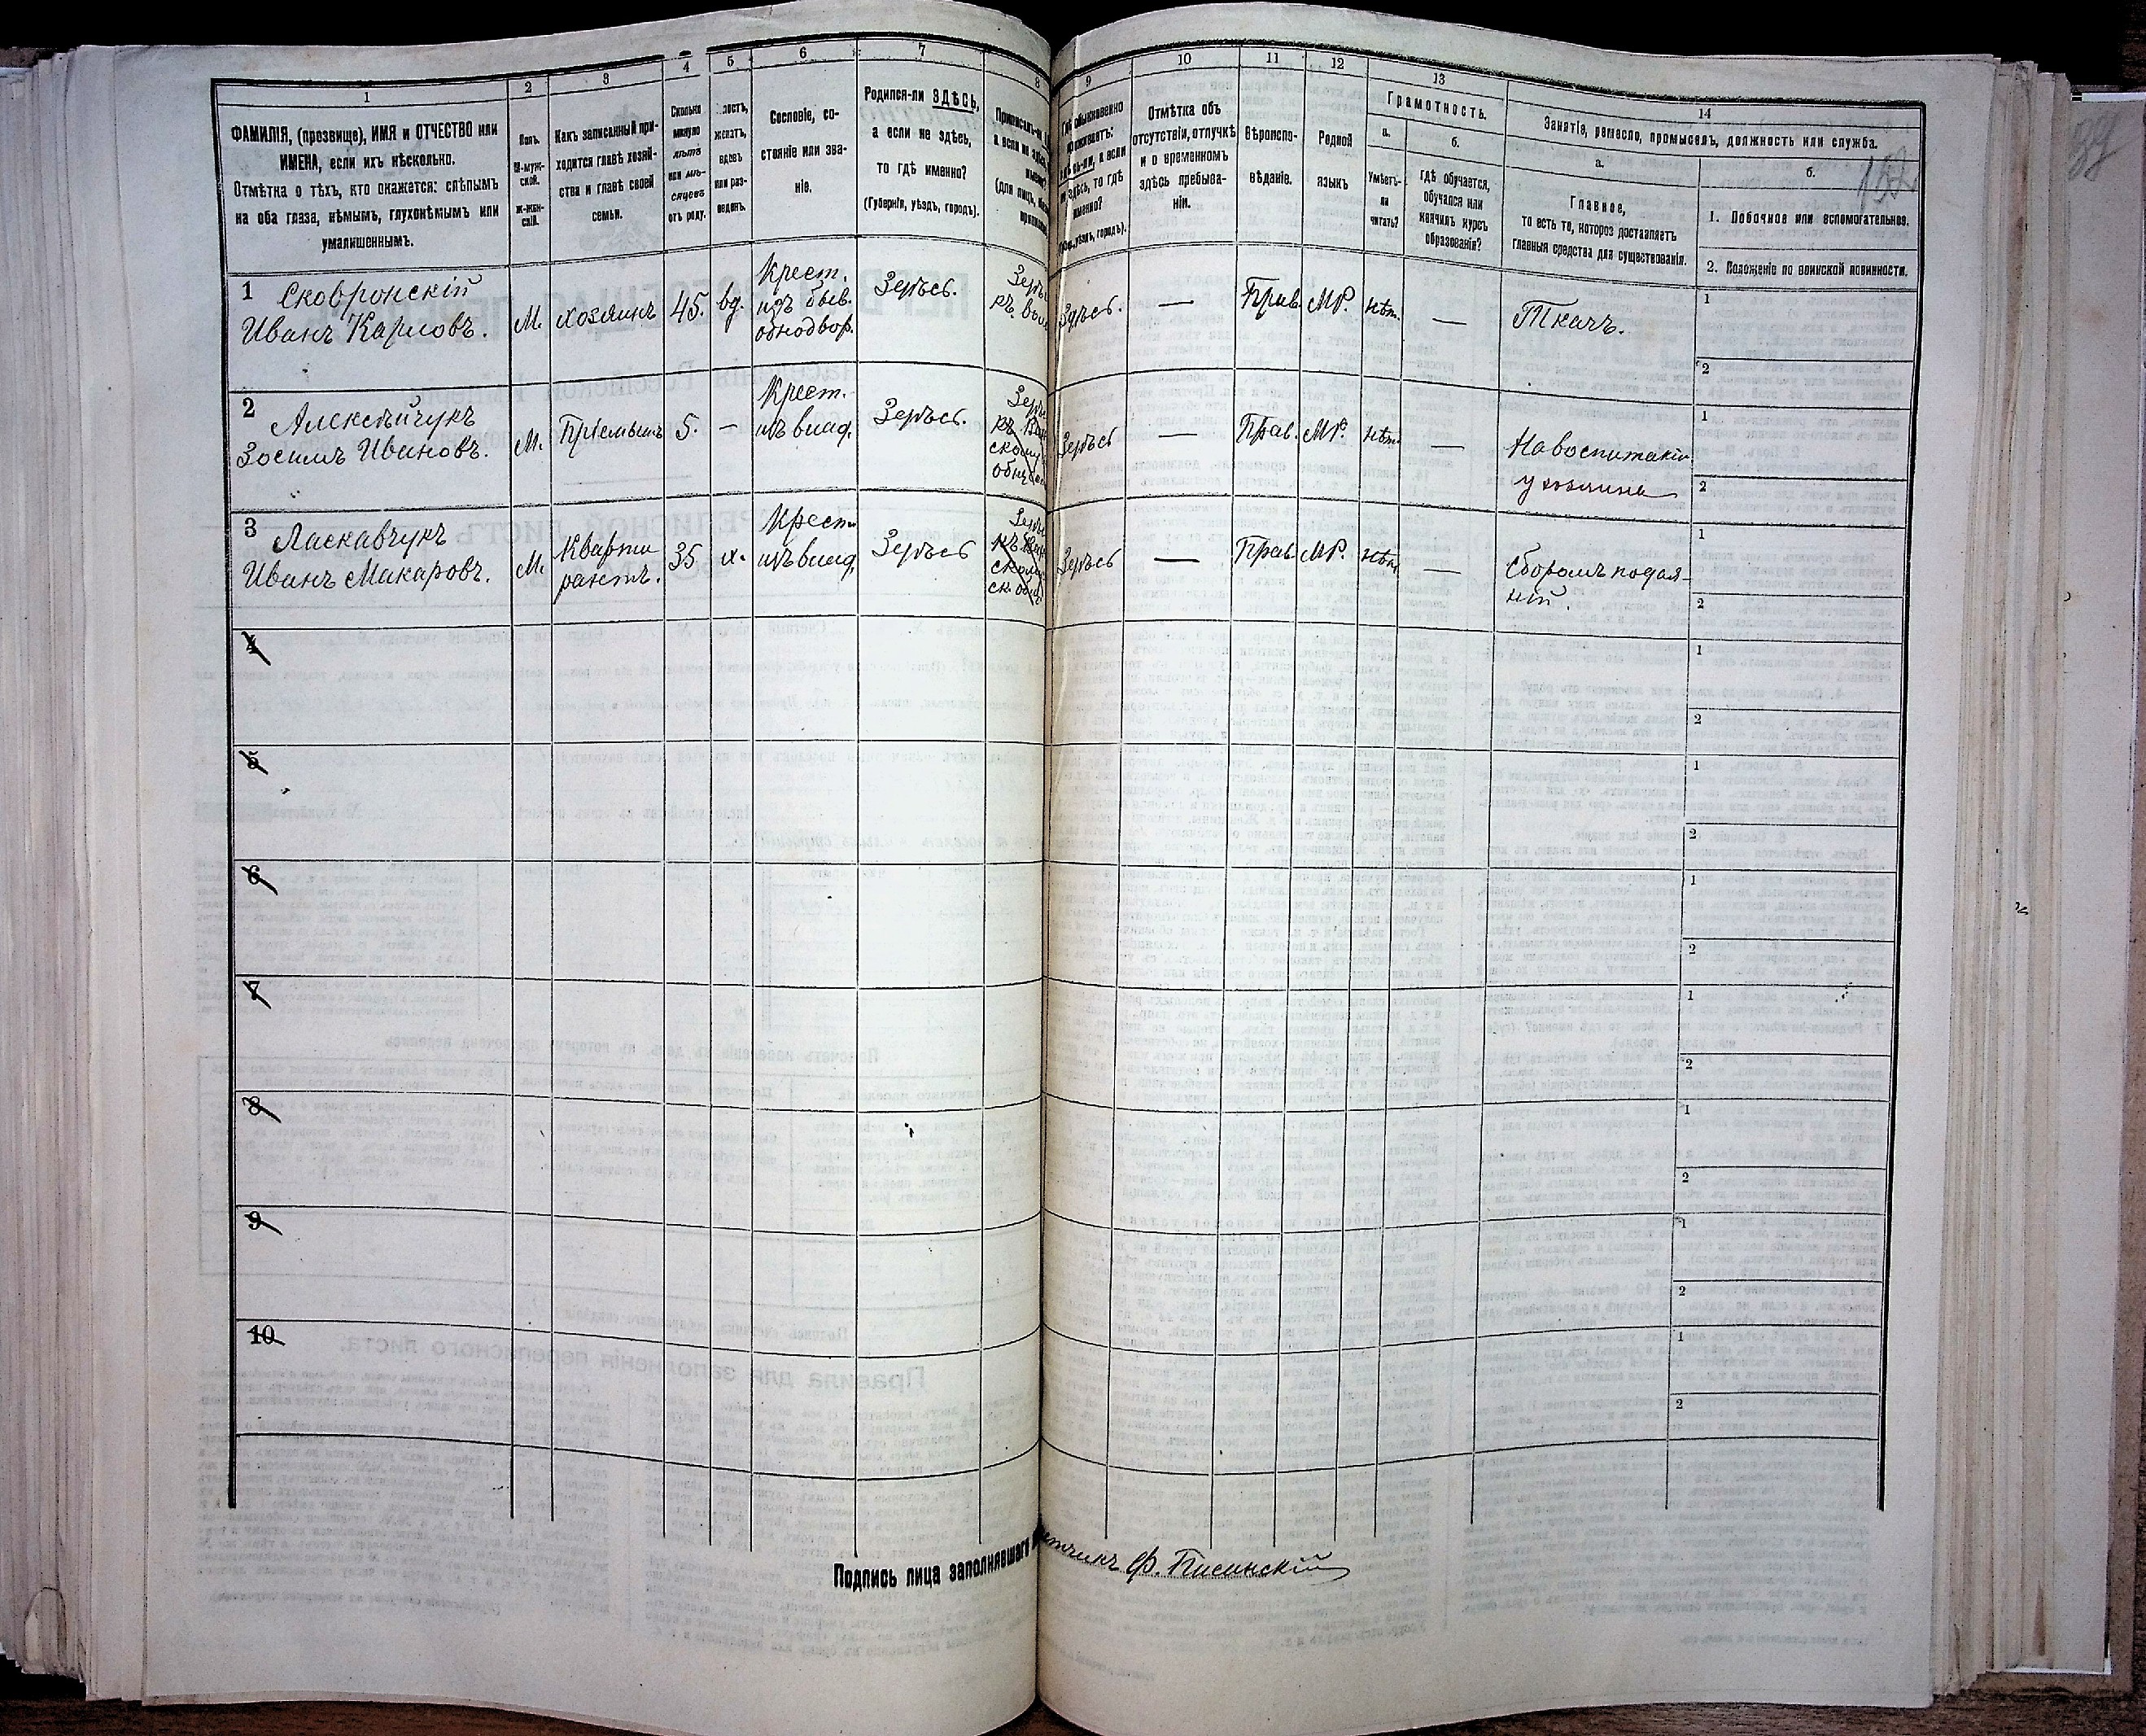 1
2
3
4
5
6
7
8
9
10
11
12
13
14
ФАМИЛІЯ, (прозвище), ИМЯ и ОТЧЕСТВО или
ИМЕНА, если ихъ нѣсколько.
Отмѣтка о тѣхъ, кто окажется: слѣпымъ
на оба глаза, нѣмымъ, глухонѣмымъ или
умалишеннымъ.
Полъ.
М-муж-
ской.
Ж-жен-
скій.
Какъ записанный при-
ходится главѣ хозяй-
ства и главѣ своей
семьи.
Сколько
минуло
лѣтъ
или мѣ-
сяцевъ
отъ роду.
женатъ,
вдовъ
или раз-
веденъ.
Сословіе, со-
стояніе или зва-
ніе.
Родился-ли ЗДѢСЬ,
а если не здѣсь,
то гдѣ именно?
(Губернія, уѣздъ, городъ).
Отмѣтка объ
отсутствіи, отлучкѣ
и о временномъ
здѣсь пребыва-
ніи.
Вѣроиспо-
вѣданіе.
Родной
языкъ
Грамотность.
а.
Умѣетъ-
ли
читать?
б.
гдѣ обучается,
обучался или
кончилъ курсъ
образованія?
Занятіе, ремесло, промыселъ, должность или служба.
а.
Главное,
то есть то, которое доставляетъ
главныя средства для существованія.
б.
152
1. Побочное или вспомогательное.
2. Положеніе по воинской повинности.
1 Сковронскій
Иванъ Карловъ.
М.
хозяинъ
45.
вд.
Крест.
изъ быв.
однодвор.
Здѣсь.
Здѣсь.
—
Прав.
МР.
нѣт.
—
Ткачъ.
1
2
2 Алексѣйчукъ
Зосимъ Ивановъ.
М.
Пріемышъ
5.
—
Крест.
изъ влад.
Здѣсь.
Здѣсь
—
Прав.
МР.
нѣт.
—
На воспитаніи
у хозяина
1
2
3 Ласкавчукъ
Иванъ Макаровъ.
М.
Кварти
рантъ.
35
х.
Крест.
изъ влад.
Здѣсь
Здѣсь
—
Прав.
МР.
нѣт.
—
Сборомъ подая-
ній.
1
2
4
1
2
5
1
2
6
1
2
7
1
2
8
1
2
9
1
2
10
1
2
Подпись лица заполнявшаго
Ф. Писинскій